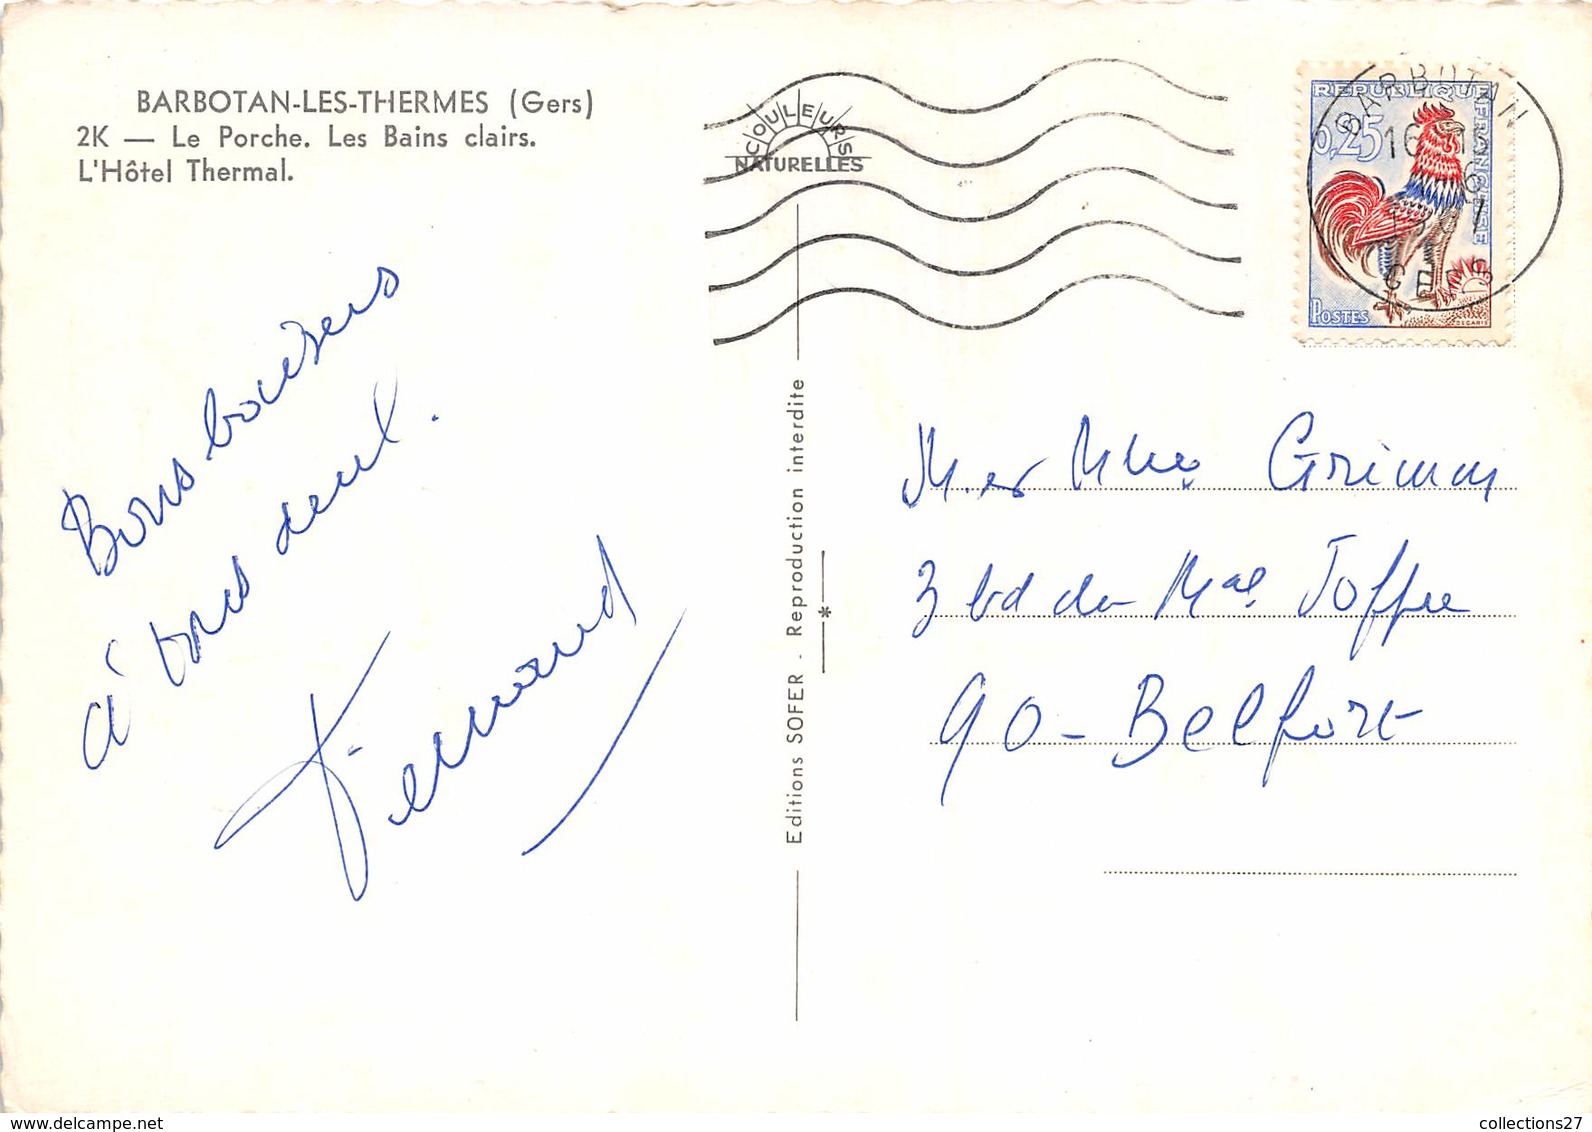 BARBOTAN-LES-THERMES (Gers)
2K — Le Porche. Les Bains clairs.
L'Hôtel Thermal.
COULEURS
NATURELLES
BARBOTAN
16
GERS
REPUBLIQUE FRANÇAISE
0,25
POSTES
DECARIS
Bons baisers
à vous deux.
Fernand
Editions SOFER - Reproduction interdite
M. et Mme Grimm
3 bd du Mal Joffre
90 - Belfort
collections27